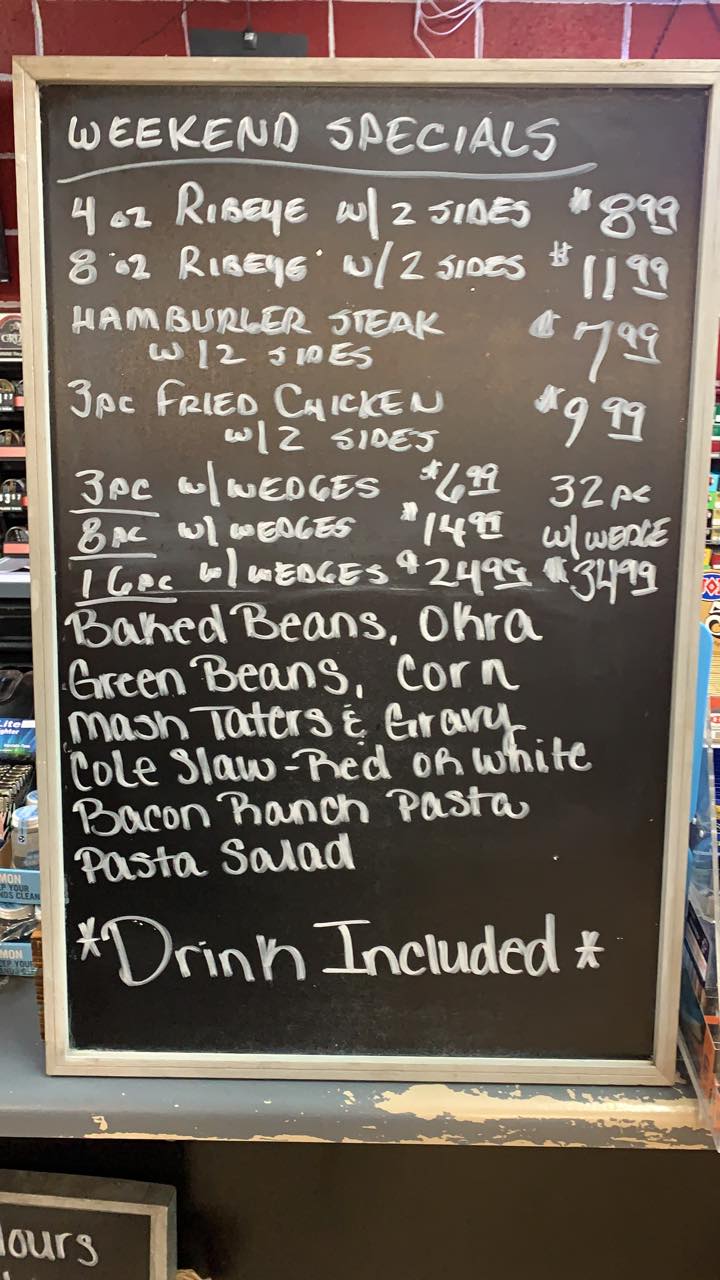 WEEKEND SPECIALS
4 oz RIBEYE W/ 2 SIDES $8.99
8 oz RIBEYE W/ 2 SIDES $11.99
HAMBURGER STEAK $7.99
W/2 SIDES
3pc FRIED CHICKEN $9.99
W/2 SIDES
3pc W/ WEDGES $6.99 32 pc
8pc W/ WEDGES $14.99 W/ WEDGE
16pc W/ WEDGES $24.99 $34.99
Baked Beans, Okra
Green Beans, Corn
Mash Taters & Gravy
Cole Slaw - Red or white
Bacon Ranch Pasta
Pasta Salad
*Drink Included*
Lite
MON
EP YOUR
NDS CLEAN
MON
ours